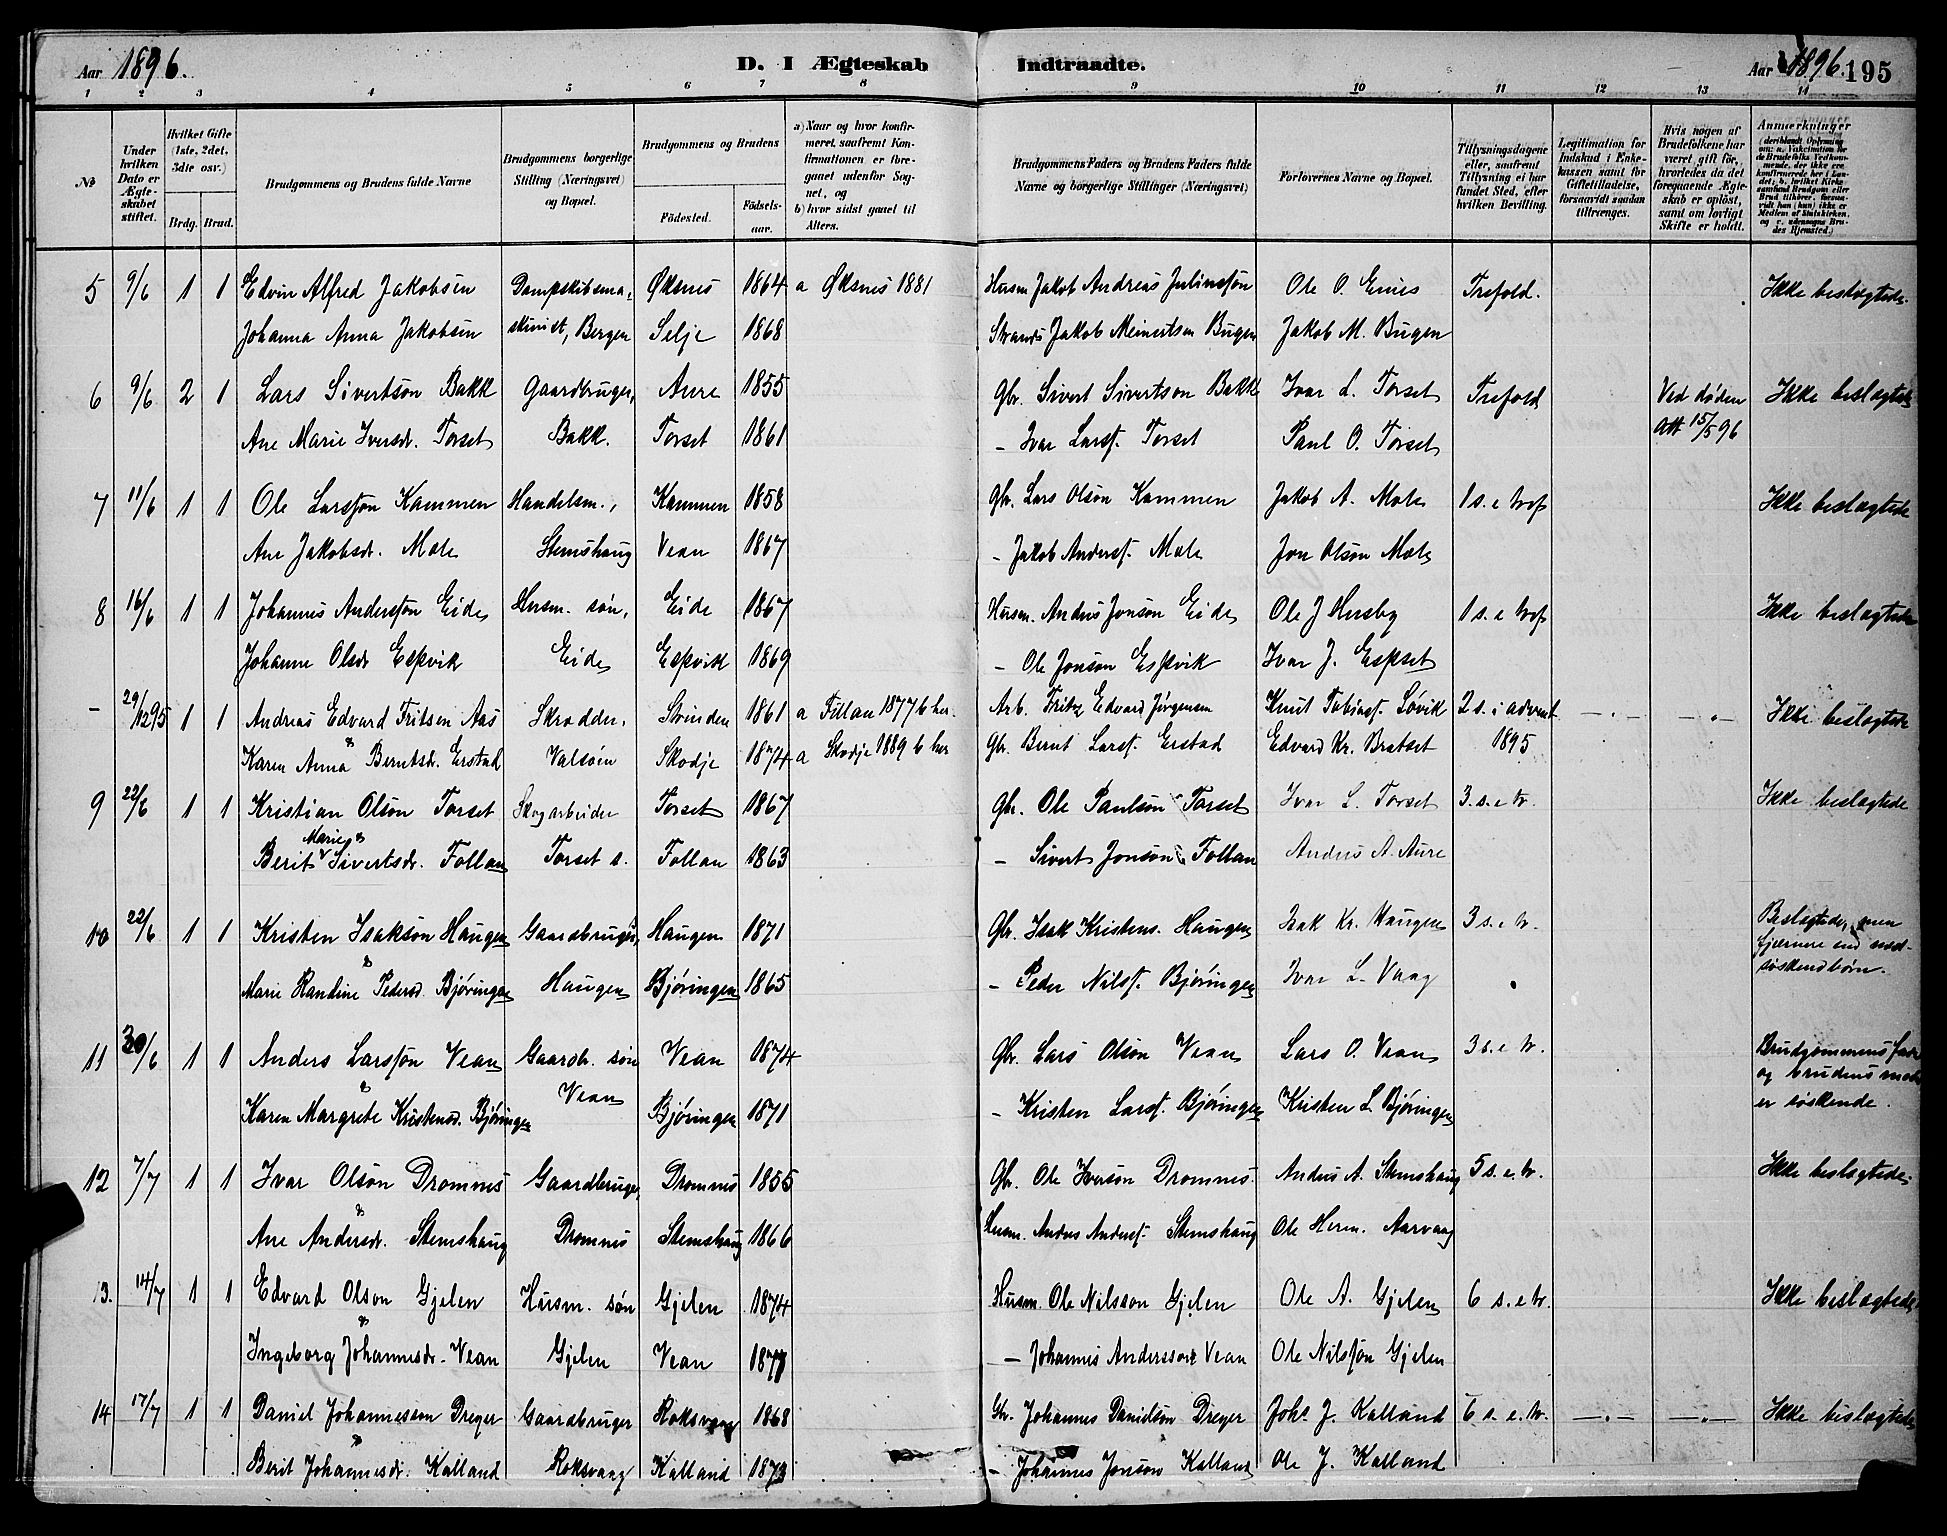 Aar 1896. D. I Ægteskab Indtraadte. Aar 1896. 195
1 2 3 4 5 6 7 8 9 10 11 12 13 14
No
Under hvilken Dato er Ægteskabet stiftet.
Hvilket Gifte (1ste, 2det, 3die osv.)
Brdg. Brud.
Brudgommens og Brudens fulde Navne
Brudgommens borgerlige Stilling (Næringsvei) og Bopæl.
Brudgommens og Brudens
Fødested. Fødselsaar.
a) Naar og hvor konfirmeret, saafremt Konfirmationen er foregaaet udenfor Sognet, og
b) hvor sidst gaaet til Alters.
Brudgommens Faders og Brudens Faders fulde Navne og borgerlige Stillinger (Næringsvei)
Forlovernes Navne og Bopæl.
Tillysningsdagene eller, saafremt Tillysning ei har fundet Sted, efter hvilken Bevilling.
Legitimation for Indskud i Enkekassen samt for Giftetilladelse, forsaavidt saadan tiltrænges.
Hvis nogen af Brudefolkene har været gift før, hvorledes da det foregaaende Ægteskab er opløst, samt om lovligt Skifte er holdt.
Anmærkninger (deriblandt Oplysning om: a. Vakcination for de Brudefolks Vedkommende, der ikke ere konfirmerede her i Landet; b. hvilket Kirkesamfund Brudgom eller Brud tilhører, forsaavidt han (hun) ikke er Medlem af Statskirken, og c. udensogns Brudes Hjemsted.)
5 9/6 1 1 Edvin Alfred Jakobsen Dampskibsma- Øksnes 1864 a Øksnes 1881 Husm Jakob Andreas Juliussøn Ole O. Enies Trefold. Ikke beslægtede.
Johanna Anna Jakobsen skinist, Bergen Selje 1868 Strands Jakob Meinertsen Bugen Jakob M. Bugen
6 9/6 2 1 Lars Sivertsøn Bakk Gaardbruger, Aure 1855 Gbr. Sivert Sivertson Bakk Ivar L. Torset Trefold Ved døden Ikke beslægtede
Ane Marie Iversdr. Torset Bakk. Torset 1861 - Ivar Larss. Torset Paul O. Torset Att 15/5 96
7 11/6 1 1 Ole Larssøn Kammen Handelsm., Kammen 1858 Gbr. Lars Olsøn Kammen Jakob A. Mele 1 s. e tref Ikke beslægtede
Ane Jakobsdr. Mele Stemshaug Vean 1867 - Jakob Anderss. Mele Jon Olsøn Mele
8 16/6 1 1 Johannes Anderssøn Eide Husm. søn, Eide 1867 Husm. Anders Jonsøn Eide Ole J Husby 1 s. e tref Ikke beslægtede
Johanne Olsdr Espvik Eide Espvik 1869 - Ole Jonsøn Espvik Ivar J. Espset
- 29/12 95 1 1 Andreas Edvard Fritsen Aas Skrædder, Strinden 1861 a Fillan 1877 b her. Arb. Fritz Edvard Jørgensen Knut Tobiass. Løvik 2 s. i advent Ikke beslægtede
& Karen Anna Berntsdr. Erstad Valsøen Skodje 1874 a Skodje 1889 b her Gbr. Bernt Larss. Erstad Edvard Kr. Bratset 1895
9 22/6 1 1 Kristian Olsøn Torset Skogarbeider Torset 1867 Gbr. Ole Paulsøn Torset Ivar L. Torset 3. s. e tr. Ikke beslægtede
& Berit Marie Sivertsdr. Follan Torset s. Follan 1863 - Sivert Jonsøn Follan Anders A. Aure
10 22/6 1 1 Kristen Isaksøn Haugen Gaardbruger, Haugen 1871 Gbr. Isak Kristens. Haugen Isak Kr. Haugen 3 s. e tr. Beslægtede, men
fjernere end næs-
søskendbørn.
& Marie Randine Pedersd. Bjøringen Haugen Bjøringen 1865 - Peder Nilss. Bjøringen Ivar L. Vaag
11 30/6 1 1 Anders Larssøn Vean Gaardb. søn Vean 1874 Gbr. Lars Olsøn Vean Lars O. Vean 3 s. e tr. Brudgommens far
og brudens mor
er søskende.
& Karen Margrete Kristensd. Bjøringen Vean Bjøringen 1871 - Kristen Larss. Bjøringen Kristen L Bjøringen
12 7/7 1 1 Ivar Olsøn Dromnes Gaardbruger, Dromnes 1855 Gbr. Ole Iversøn Dromnes. Anders A. Stemshaug 5 s. e. tr. Ikke beslægtede.
& Ane Andersdr. Stemshaug Dromnes Stemshaug 1866 Husm. Anders Anderss. Stemshaug Ole Herm. Aarvaag
13. 14/7 1 1 Edvard Olsøn Gjelen Husm. søn Gjelen 1874 Husm. Ole Nilssøn Gjelen Ole A. Gjelen 6 s. e tr. Ikke beslægtede
& Ingeborg Johannesdr. Vean Gjelen Vean 1877 - Johannes Anderssøn Vean Ole Nilssøn Gjelen
14 17/7 1 1 Daniel Johannessøn Dreyer Gaardbruger Roksvaag 1868 Gbr. Johannes Danielsøn Dreyer Johs J. Kalland 6 s. e. tr. Ikke beslægtede
& Berit Johannesdr. Kalland Roksvaag Kalland 1873 - Johannes Jonsøn Kalland Ole J. Kalland